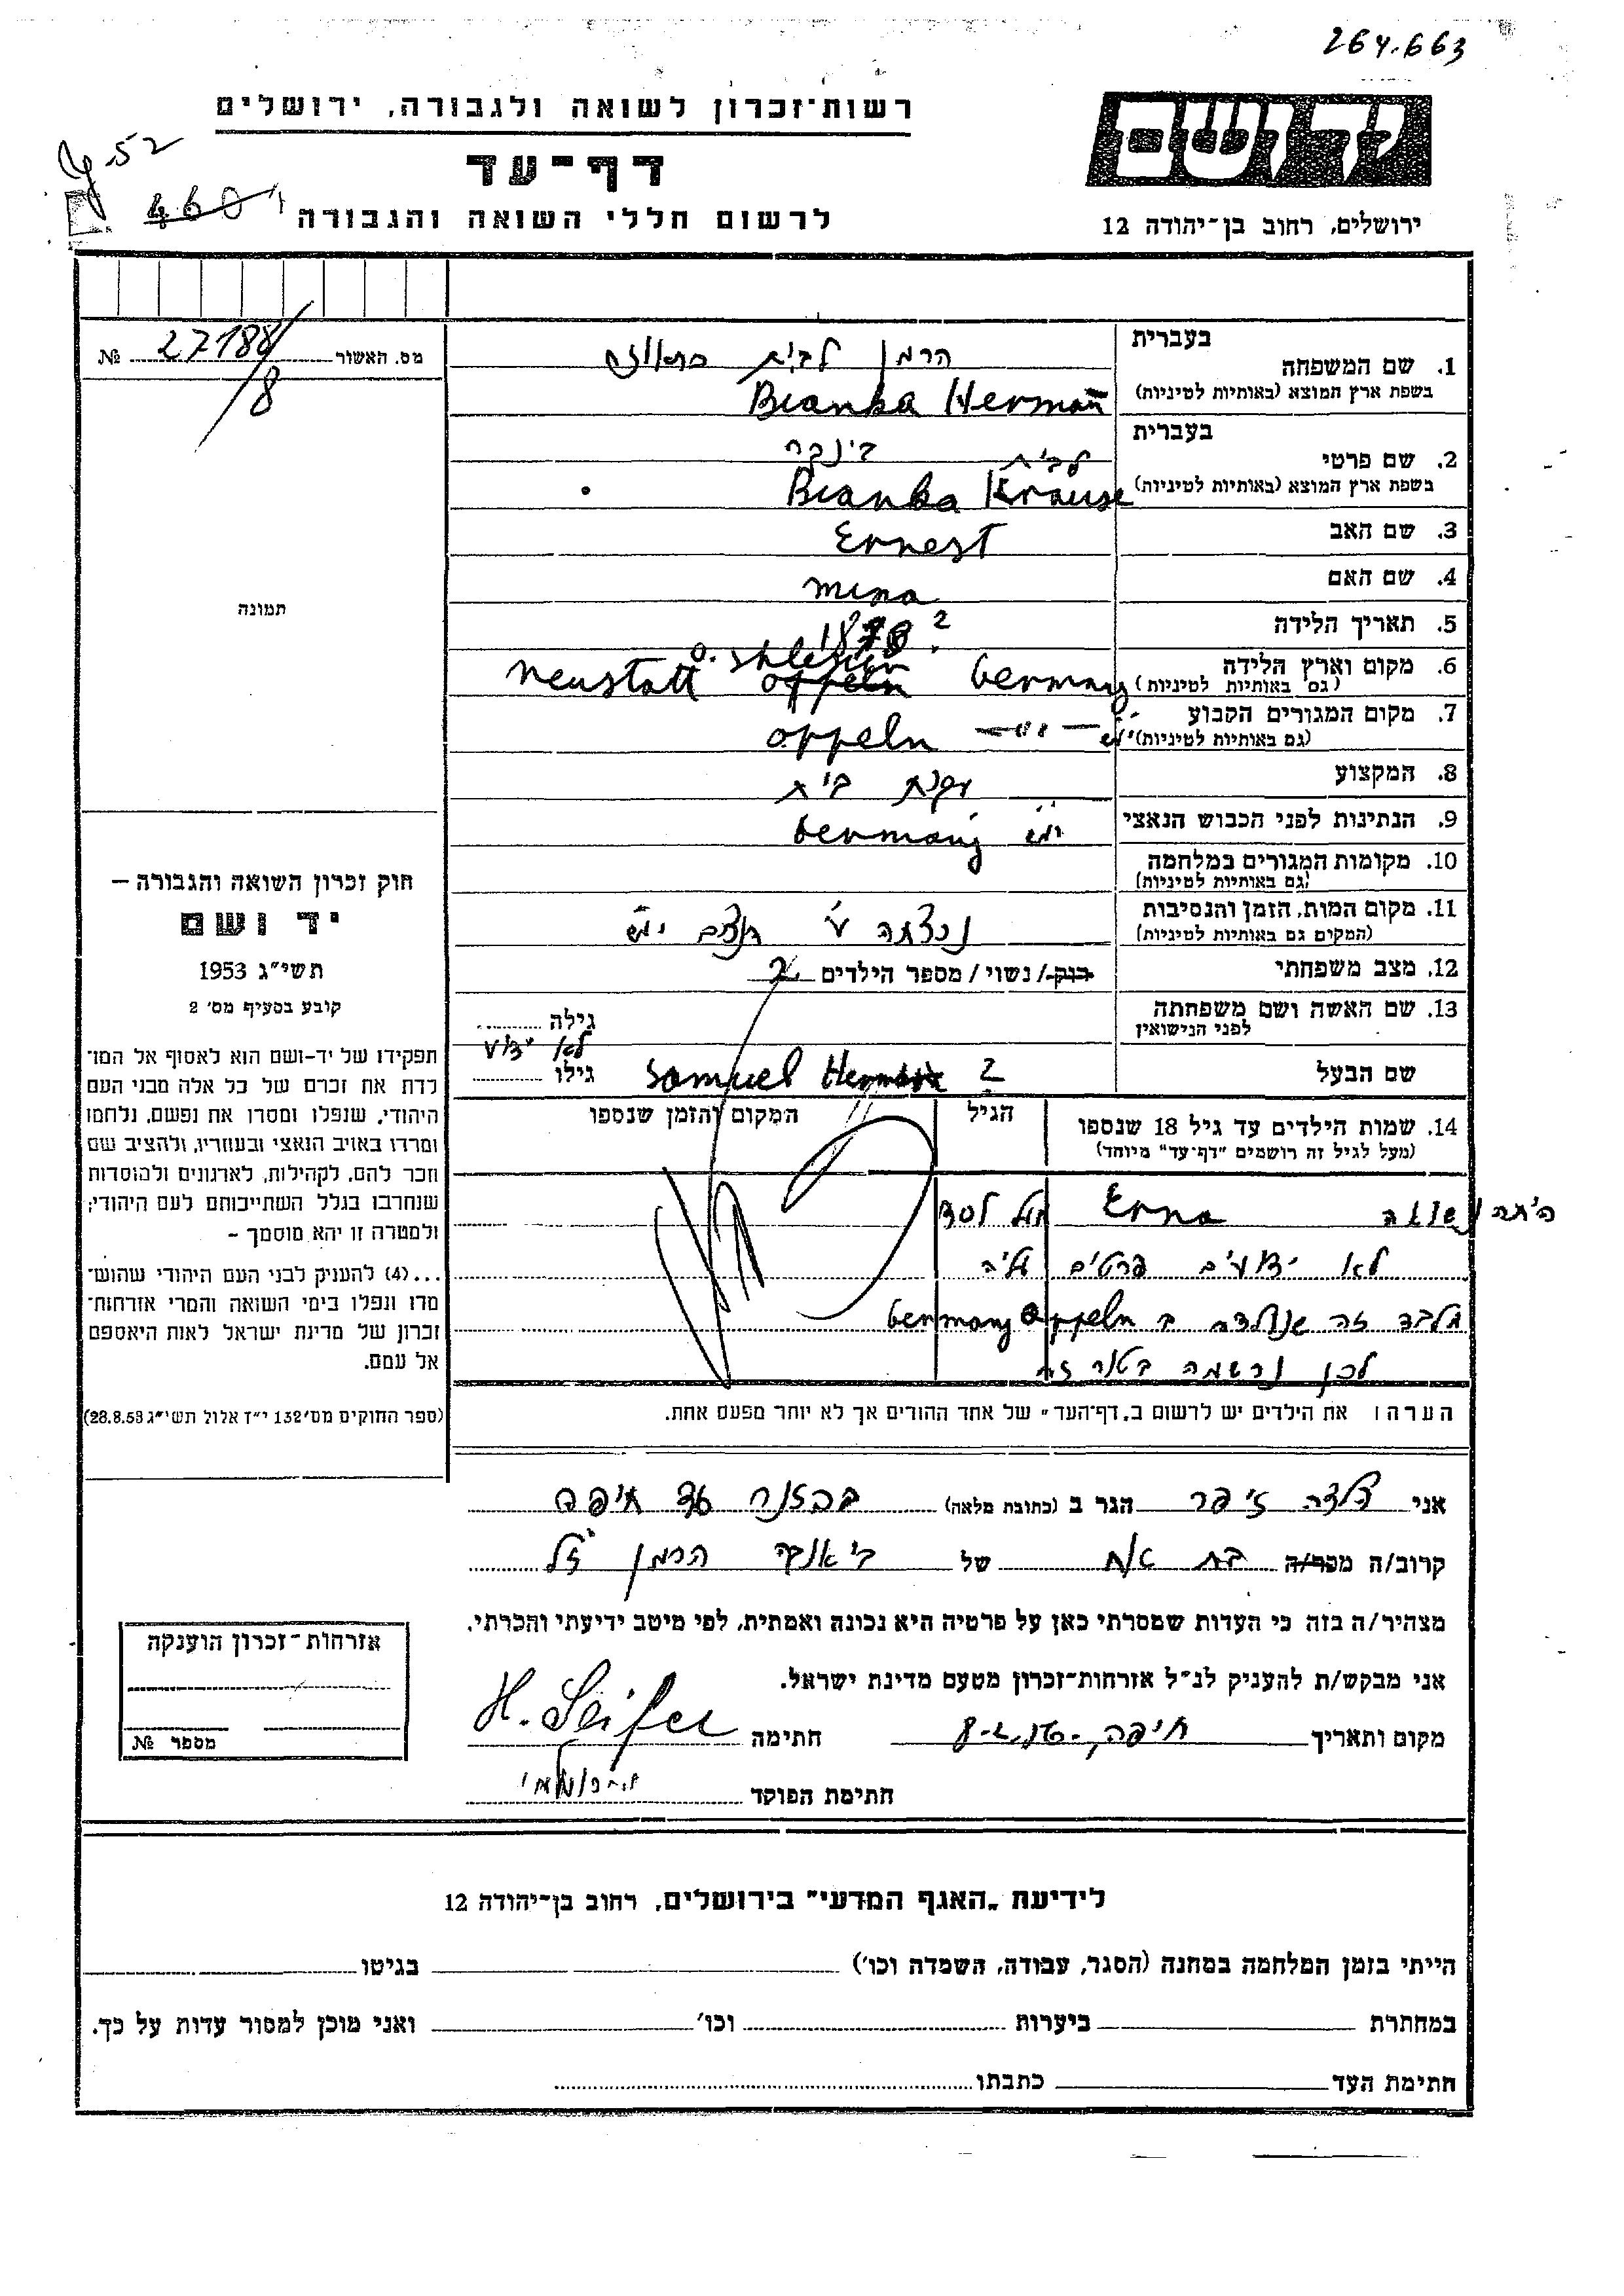 264.663
רשות־זכרון לשואה ולגבורה, ירושלים
יד ושם
52
דף־עד
460
לרשום חללי השואה והגבורה
ירושלים, רחוב בן־יהודה 12
מס. האשור 27188/8 №
תמונה
בעברית
1. שם המשפחה הרמן לבית קראוזה
בשפת ארץ המוצא (באותיות לטיניות) Bianka Herman
בעברית
2. שם פרטי בינקה
לבית
בשפת ארץ המוצא (באותיות לטיניות) Bianka Krause
3. שם האב Ernest
4. שם האם Mina
5. תאריך הלידה 1878 ?
6. מקום וארץ הלידה Neustatt O. Shlesien Oppeln Germany
(גם באותיות לטיניות)
7. מקום המגורים הקבוע Oppeln
(גם באותיות לטיניות)
8. המקצוע עקרת בית
9. הנתינות לפני הכבוש הנאצי Germany
10. מקומות המגורים במלחמה
(גם באותיות לטיניות)
11. מקום המות, הזמן והנסיבות נרצחה ע"י
(המקום גם באותיות לטיניות)
12. מצב משפחתי רווק / נשוי / מספר הילדים 2
13. שם האשה ושם משפחתה
לפני הנישואין
גילה
לא ידוע
שם הבעל Samuel Herman ? גילו
14. שמות הילדים עד גיל 18 שנספו הגיל המקום והזמן שנספו
(מעל לגיל זה רושמים "דף־עד" מיוחד)
היתה נשואה Erna
לא ידועים פרטים עליה
מלבד זה שנולדה ב Oppeln Germany
לכן נרשמה בטור זה
הערה: את הילדים יש לרשום ב„דף־העד" של אחד ההורים אך לא יותר מפעם אחת.
חוק זכרון השואה והגבורה –
יד ושם
תשי״ג 1953
קובע בסעיף מס׳ 2
תפקידו של יד-ושם הוא לאסוף אל המו־
לדת את זכרם של כל אלה מבני העם
היהודי, שנפלו ומסרו את נפשם, נלחמו
ומרדו באויב הנאצי ובעוזריו, ולהציב שם
וזכר להם, לקהילות, לארגונים ולמוסדות
שנחרבו בגלל השתייכותם לעם היהודי;
ולמטרה זו יהא מוסמך –
...(4) להעניק לבני העם היהודי שהוש־
מדו ונפלו בימי השואה והמרי אזרחות־
זכרון של מדינת ישראל לאות היאספם
אל עמם.
(ספר החוקים מס׳ 132 י״ז אלול תשי״ג 28.8.53)
אני הלדה זיפר הגר ב (כתובת מלאה) חיפה
קרוב/ה מכר/ה בת אח של ביאנקה הרמן ז"ל
מצהיר/ה בזה כי העדות שמסרתי כאן על פרטיה היא נכונה ואמתית, לפי מיטב ידיעתי והכרתי.
אני מבקש/ת להעניק לנ״ל אזרחות־זכרון מטעם מדינת ישראל.
מקום ותאריך חיפה, חתימה H. Seifer
חתימת הפוקד
אזרחות־זכרון הוענקה
מספר №
לידיעת „האגף המדעי" בירושלים, רחוב בן־יהודה 12
הייתי בזמן המלחמה במחנה (הסגר, עבודה, השמדה וכו׳) בגיטו
במחתרת ביערות וכו׳ ואני מוכן למסור עדות על כך.
חתימת העד כתבתו